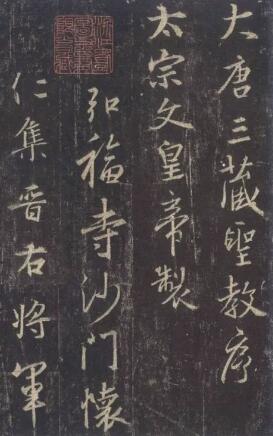 大唐三藏聖教序
太宗文皇帝製
弘福寺沙門懷
仁集晋右將軍